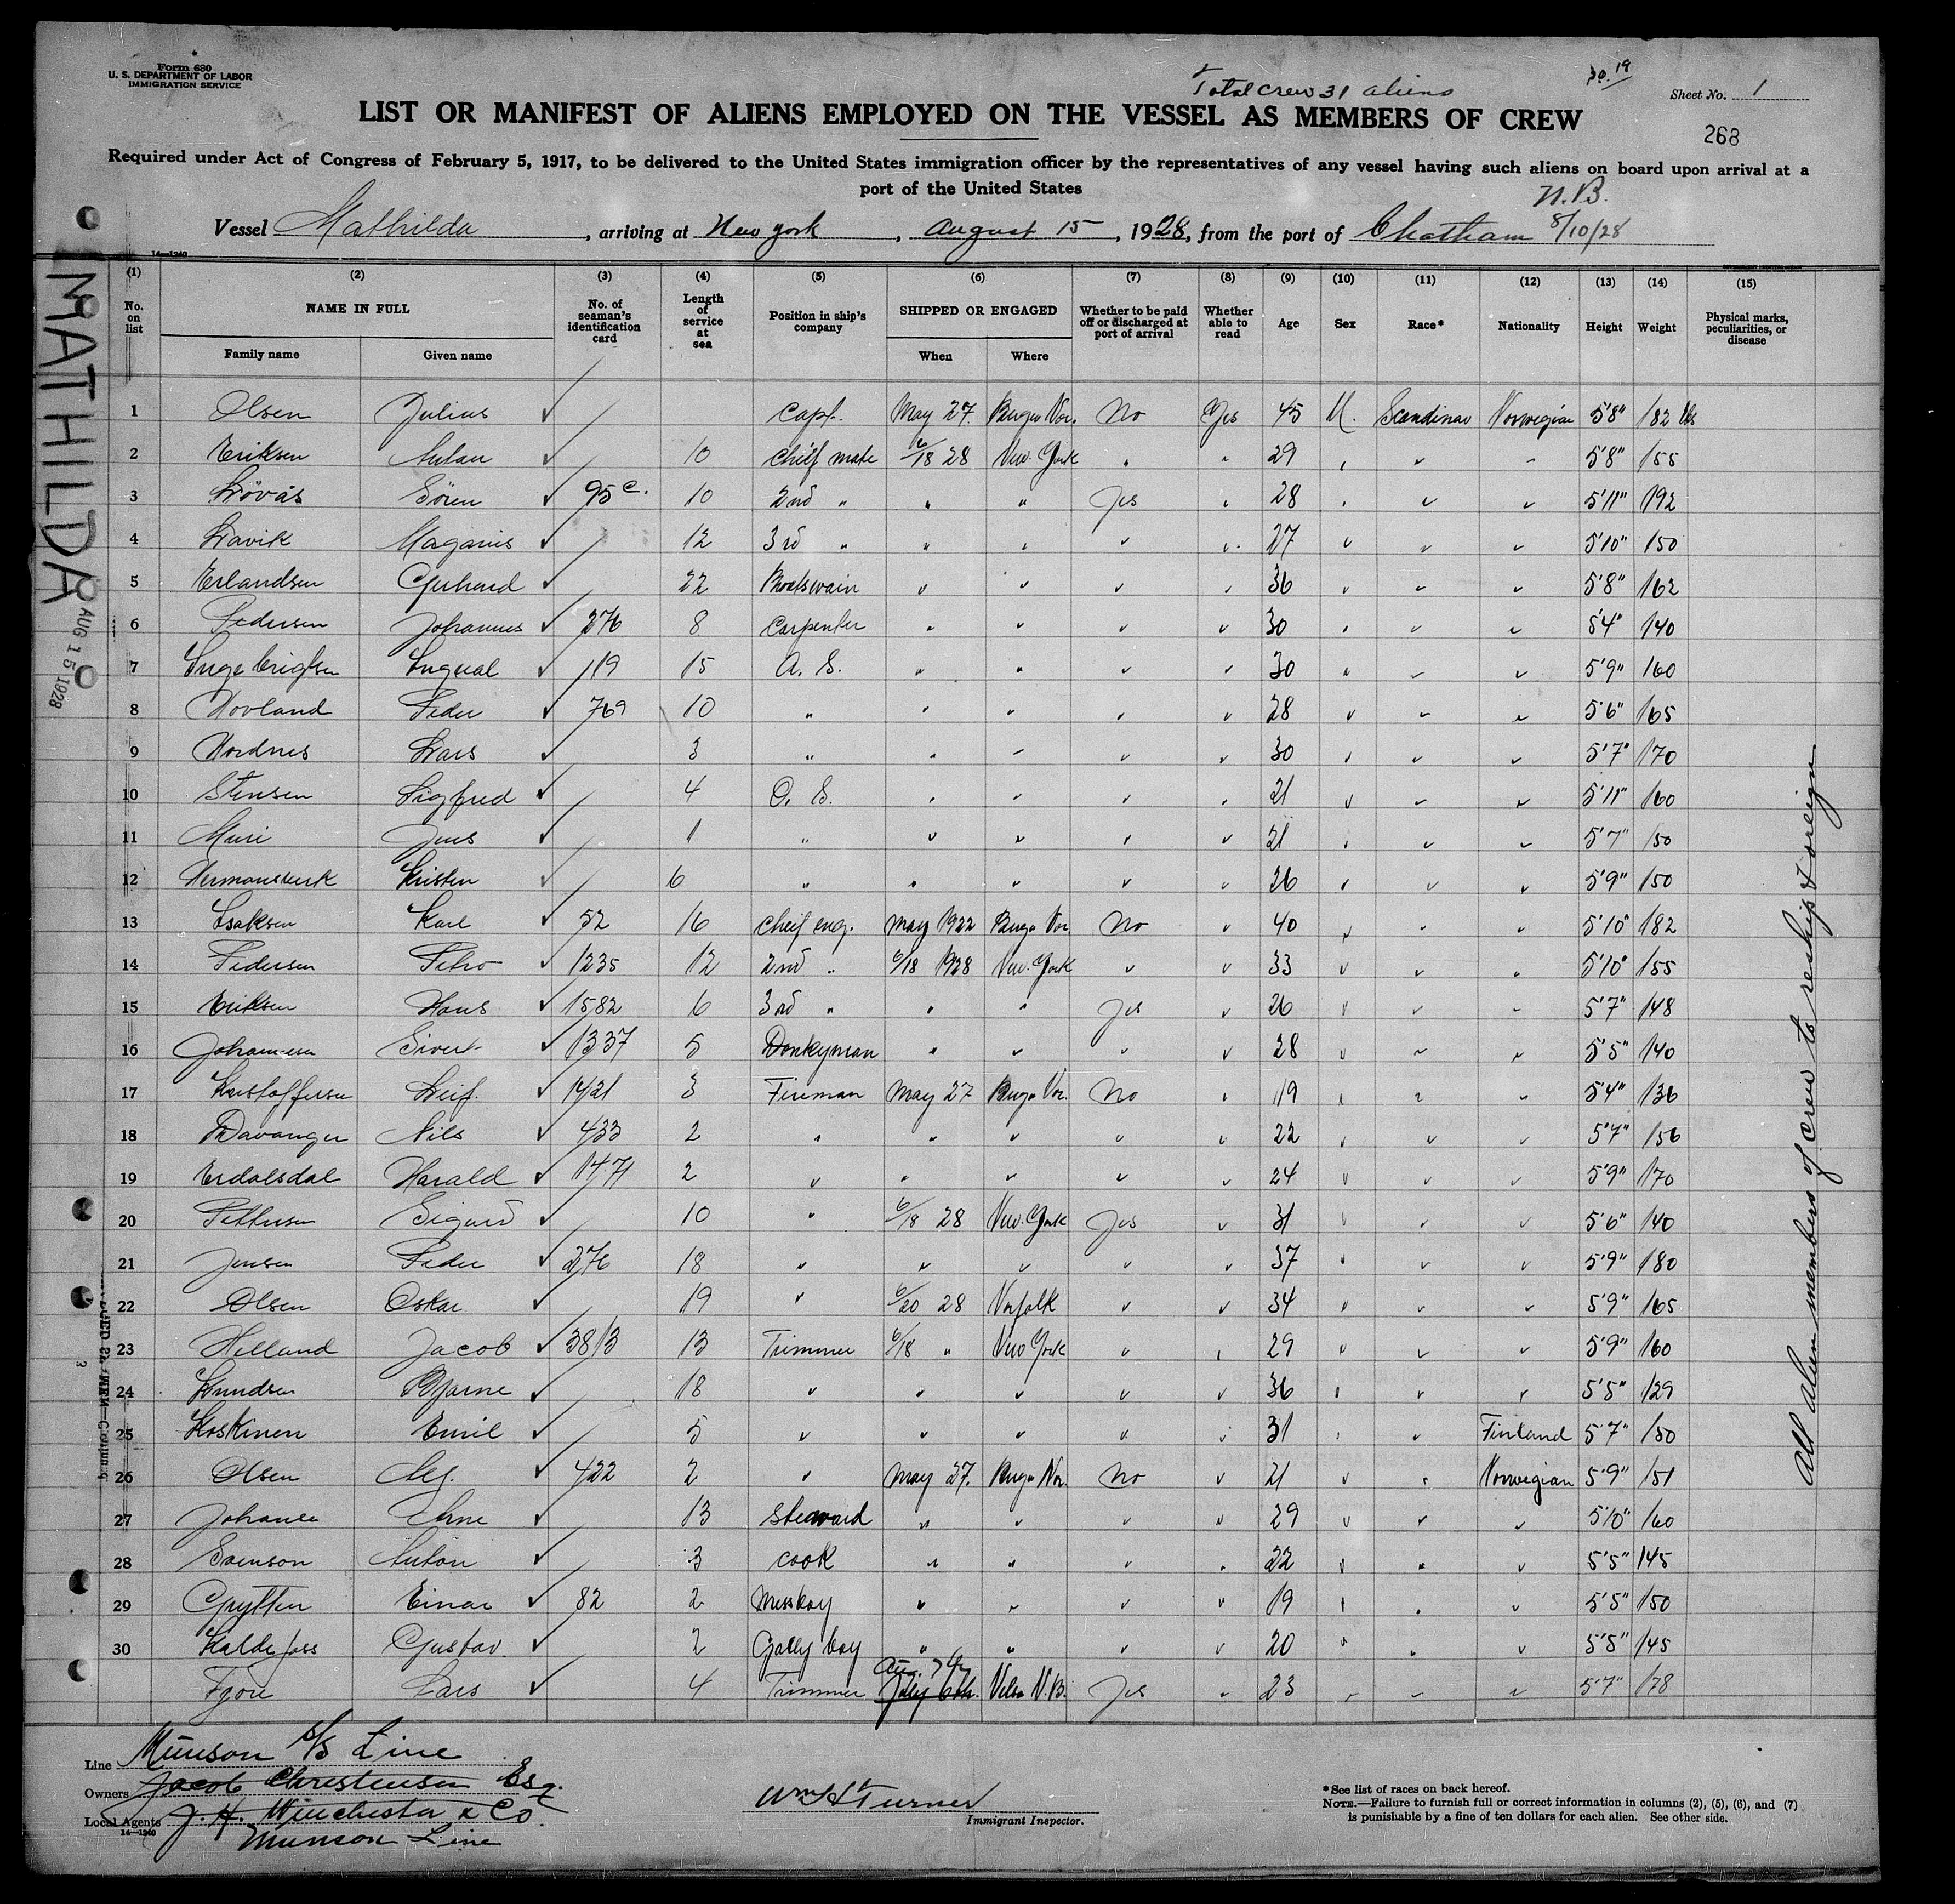 Form 680
U. S. DEPARTMENT OF LABOR
IMMIGRATION SERVICE
Total crew 31 aliens
Sheet No. 1
268
LIST OR MANIFEST OF ALIENS EMPLOYED ON THE VESSEL AS MEMBERS OF CREW
Required under Act of Congress of February 5, 1917, to be delivered to the United States immigration officer by the representatives of any vessel having such aliens on board upon arrival at a
port of the United States
N.B.
Vessel Mathilda, arriving at New York, August 15, 1928, from the port of Chatham 8/10/28
14—1240
MATHILDA
AUG 15 1928
(1) (2) (3) (4) (5) (6) (7) (8) (9) (10) (11) (12) (13) (14) (15)
No. on list NAME IN FULL No. of seaman's identification card Length of service at sea Position in ship's company SHIPPED OR ENGAGED Whether to be paid off or discharged at port of arrival Whether able to read Age Sex Race* Nationality Height Weight Physical marks, peculiarities, or disease
Family name Given name When Where
1 Olsen Julius ✓ Capt. May 27. Bergen Nor. No Yes 45 M. Scandinav Norwegian 5'8" 182 lbs
2 Eriksen ✓ 10 Chief mate 6/18 28 New York " " 29 " " " 5'8" 155
3 Lövås Sören ✓ 95 c. 10 2nd " " " Yes " 28 " " " 5'11" 192
4 Lavik Magnus ✓ 12 3rd " " " " " 27 " " " 5'10" 150
5 Erlandsen Gerhard ✓ 22 Boatswain " " " " 36 " " " 5'8" 162
6 Pedersen Johannes ✓ 276 8 Carpenter " " " " 30 " " " 5'4" 140
7 Ingval ✓ 119 15 A. S. " " " " 30 " " " 5'9" 160
8 Hovland Peder ✓ 769 10 " " " " " 28 " " " 5'6" 165
9 Hordnes Lars ✓ 3 " " " " " 30 " " " 5'7" 170
10 Stensen Sigfred ✓ 4 O. S. " " " " 21 " " " 5'11" 160
11 Muri Jens ✓ 1 " " " " " 21 " " " 5'7" 150
12 Kristen ✓ 6 " " " " " 26 " " " 5'9" 150
13 Isaksen Karl ✓ 52 16 Cheif eng. May 1922 Bergen Nor. No " 40 " " " 5'10" 182
14 Pedersen Petro ✓ 1235 12 2nd " 6/18 1928 New York " " 33 " " " 5'10" 155
15 Eriksen Hans ✓ 1582 6 3rd " " " Yes " 26 " " " 5'7" 148
16 Johannesen Sivert ✓ 1337 5 Donkeyman " " " " 28 " " " 5'5" 140
17 Kristoffersen Leif. ✓ 1421 3 Fireman May 27 Bergen Nor. No " 19 " " " 5'4" 136
18 Davanger Nils ✓ 433 2 " " " " " 22 " " " 5'7" 156
19 Erdalsdal Harald ✓ 1471 2 " " " " " 24 " " " 5'9" 170
20 Pettersen Sigurd ✓ 10 " 6/18 28 New York Yes " 31 " " " 5'6" 140
21 Jensen Peder ✓ 276 18 " " " " " 37 " " " 5'9" 180
22 Olsen Oskar ✓ 19 " 6/20 28 Norfolk " " 34 " " " 5'9" 165
23 Helland Jacob ✓ 3813 13 Trimmer 6/18 " New York " " 29 " " " 5'9" 160
24 Knudsen Bjarne ✓ 18 " " " " " 36 " " " 5'5" 129
25 Koskinen Emil ✓ 5 " " " " " 31 " " Finland 5'7" 150
26 Olsen Alf. ✓ 422 2 " May 27. Bergen Nor. No " 21 " " Norwegian 5'9" 151
27 Arne ✓ 13 Steward " " " " 29 " " " 5'10" 160
28 Svenson Anton ✓ 3 cook " " " " 22 " " " 5'5" 145
29 Grytten Einar ✓ 82 2 Messboy " " " " 19 " " " 5'5" 150
30 Gustav. ✓ 2 Gally boy " " " " 20 " " " 5'5" 145
Lars ✓ 4 Trimmer Aug. 7 July 6th. N.B. Yes " 23 " " " 5'7" 178
All alien members of crew to reship foreign
Line Munson S/S Line
Owners Jacob Christensen Esq.
Local Agents J. H. Winchester & Co.
14—1240
Munson Line
Wm Turner
Immigrant Inspector.
*See list of races on back hereof.
NOTE.—Failure to furnish full or correct information in columns (2), (5), (6), and (7)
is punishable by a fine of ten dollars for each alien. See other side.